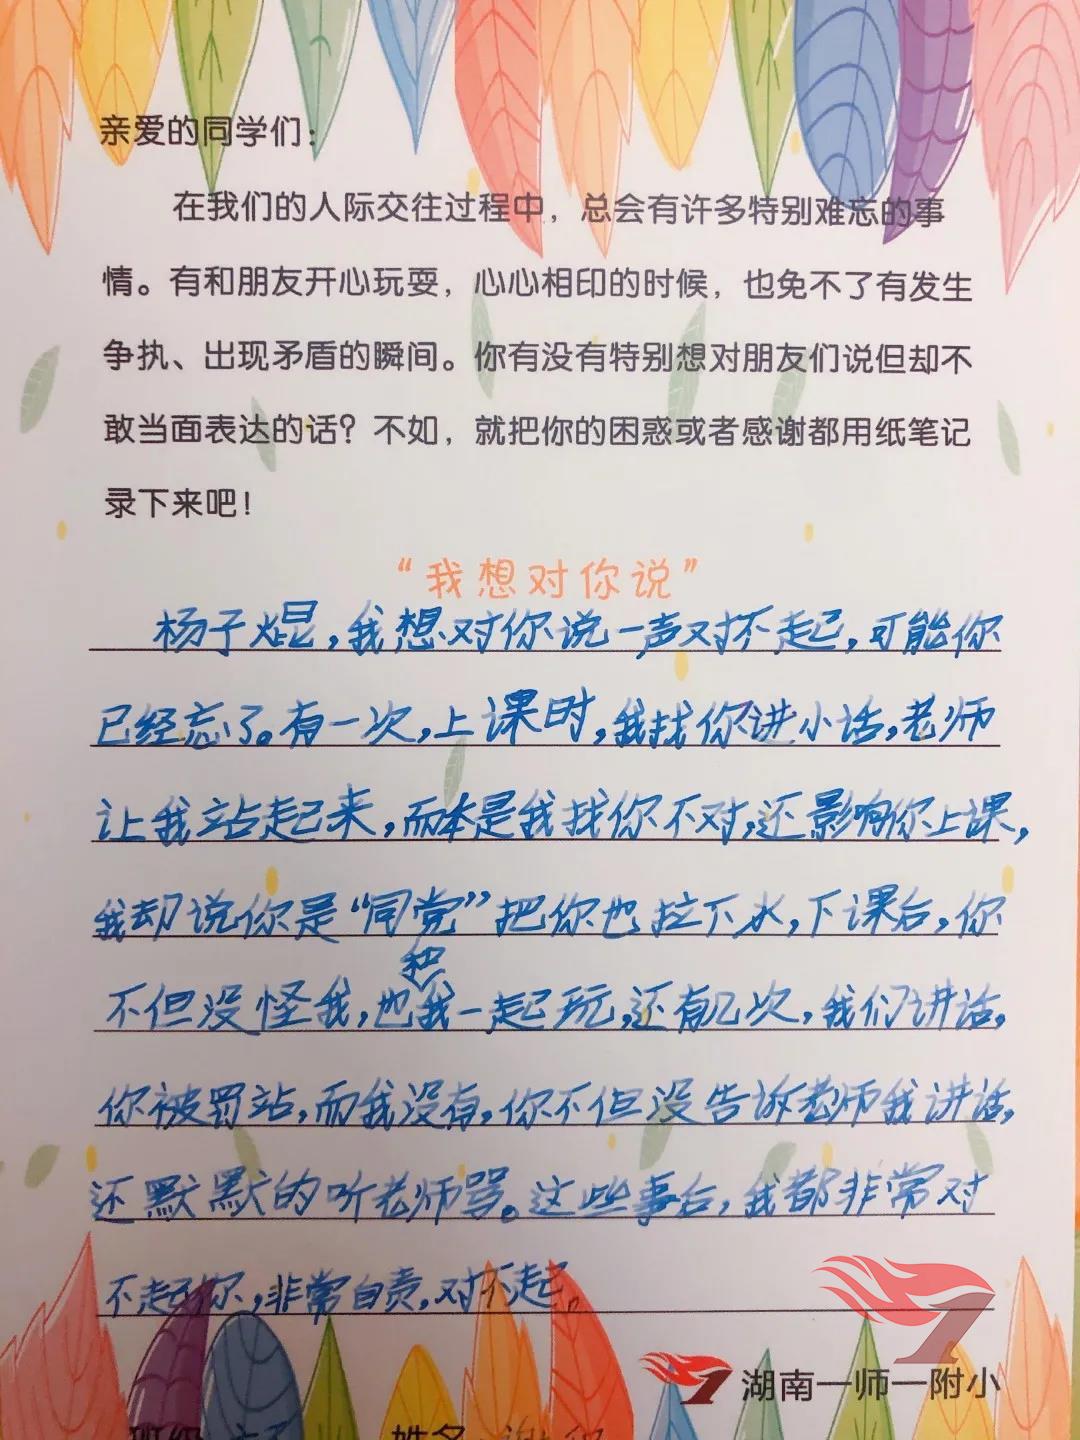 亲爱的同学们：
在我们的人际交往过程中，总会有许多特别难忘的事
情。有和朋友开心玩耍，心心相印的时候，也免不了有发生
争执、出现矛盾的瞬间。你有没有特别想对朋友们说但却不
敢当面表达的话？不如，就把你的困惑或者感谢都用纸笔记
录下来吧！
“我想对你说”
杨子焜，我想对你说一声对不起，可能你
已经忘了。有一次，上课时，我找你进小话，老师
让我站起来，而本是我找你不对，还影响你上课，
我却说你是“同党”把你也拉下水，下课后，你
不但没怪我，也和我一起玩，还有几次，我们讲话，
你被罚站，而我没有，你不但没告诉老师我讲话，
还默默的听老师骂。这些事后，我都非常对
不起你，非常自责，对不起。
湖南一师一附小
班级
姓名